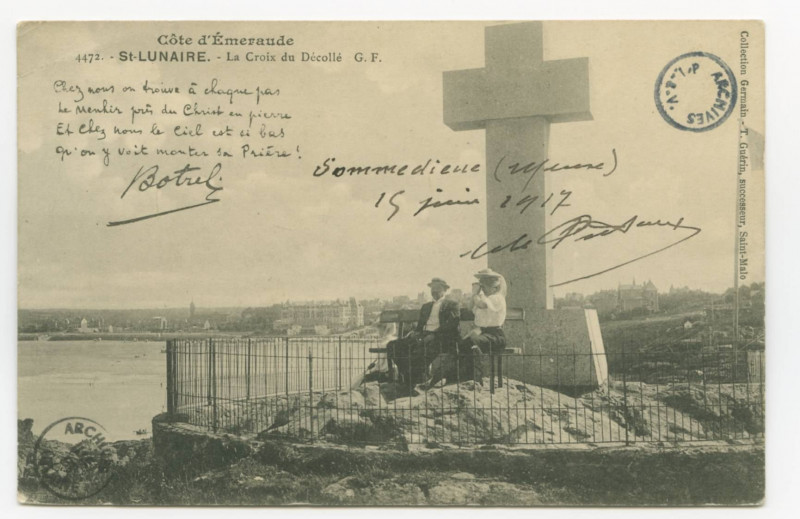 Côte d'Émeraude
4472. - St-LUNAIRE. - La Croix du Décollé G. F.
Chez nous on trouve à chaque pas
Le Menhir près du Christ en pierre
Et Chez nous le Ciel est si bas
Qu'on y voit monter sa Prière !
Botrel
Sommedieue (Meuse)
15 juin 1917
ARCHIVES
Collection Germain. - T. Guérin, successeur, Saint-Malo
ARCH